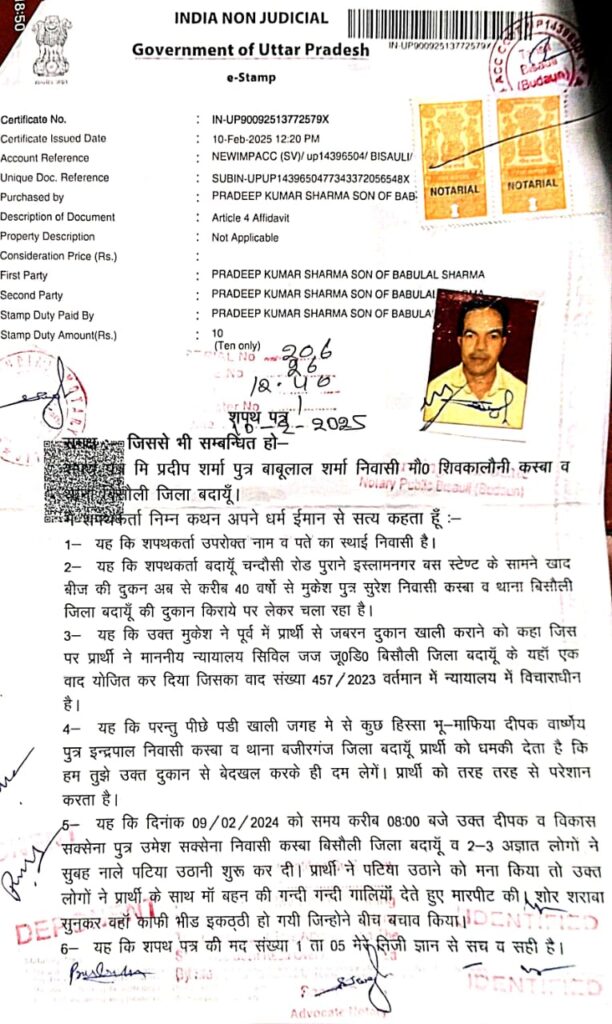 18:50
INDIA NON JUDICIAL
Government of Uttar Pradesh
e-Stamp
IN-UP90092513772579X
Bisauli
(Budaun)
NOTARIAL
NOTARIAL
Certificate No. : IN-UP90092513772579X
Certificate Issued Date : 10-Feb-2025 12:20 PM
Account Reference : NEWIMPACC (SV)/ up14396504/ BISAULI/
Unique Doc. Reference : SUBIN-UPUP1439650477343372056548X
Purchased by : PRADEEP KUMAR SHARMA SON OF BAB
Description of Document : Article 4 Affidavit
Property Description : Not Applicable
Consideration Price (Rs.) :
First Party : PRADEEP KUMAR SHARMA SON OF BABULAL SHARMA
Second Party : PRADEEP KUMAR SHARMA SON OF BABULAL SHARMA
Stamp Duty Paid By : PRADEEP KUMAR SHARMA SON OF BABULA
Stamp Duty Amount(Rs.) : 10
(Ten only)
206
26
12.40
शपथ पत्र
10-2-2025
समक्ष :- जिससे भी सम्बन्धित हो–
शपथ पत्र मि प्रदीप शर्मा पुत्र बाबूलाल शर्मा निवासी मौ0 शिवकालौनी कस्बा व
थाना बिसौली जिला बदायूँ।
Notary Public Bisauli (Budaun)
मैं शपथकर्ता निम्न कथन अपने धर्म ईमान से सत्य कहता हूँ :–
1– यह कि शपथकर्ता उपरोक्त नाम व पते का स्थाई निवासी है।
2– यह कि शपथकर्ता बदायूँ चन्दौसी रोड पुराने इस्लामनगर बस स्टेण्ट के सामने खाद
बीज की दुकन अब से करीब 40 वर्षो से मुकेश पुत्र सुरेश निवासी कस्बा व थाना बिसौली
जिला बदायूँ की दुकान किराये पर लेकर चला रहा है।
3– यह कि उक्त मुकेश ने पूर्व में प्रार्थी से जबरन दुकान खाली कराने को कहा जिस
पर प्रार्थी ने माननीय न्यायालय सिविल जज जू0डि0 बिसौली जिला बदायूँ के यहाँ एक
वाद योजित कर दिया जिसका वाद संख्या 457/2023 वर्तमान में न्यायालय में विचाराधीन
है।
4– यह कि परन्तु पीछे पडी खाली जगह मे से कुछ हिस्सा भू–माफिया दीपक वार्ष्णेय
पुत्र इन्द्रपाल निवासी कस्बा व थाना बजीरगंज जिला बदायूँ प्रार्थी को धमकी देता है कि
हम तुझे उक्त दुकान से बेदखल करके ही दम लेगें। प्रार्थी को तरह तरह से परेशान
करता है।
5– यह कि दिनांक 09/02/2024 को समय करीब 08:00 बजे उक्त दीपक व विकास
सक्सेना पुत्र उमेश सक्सेना निवासी कस्बा बिसौली जिला बदायूँ व 2–3 अज्ञात लोगों ने
सुबह नाले पटिया उठानी शुरू कर दी। प्रार्थी ने पटिया उठाने को मना किया तो उक्त
लोगों ने प्रार्थी के साथ माँ बहन की गन्दी गन्दी गालियाँ देते हुए मारपीट की। शोर शराबा
सुनकर वहाँ काफी भीड इकठठी हो गयी जिन्होने बीच बचाव किया।
DEPONENT
IDENTIFIED
6– यह कि शपथ पत्र की मद संख्या 1 ता 05 मेरे निजी ज्ञान से सच व सही है।
IDENTIFIED
Advocate Notary